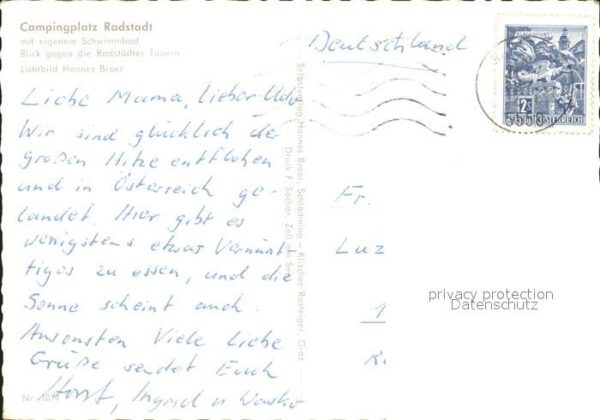 Campingplatz Radstadt
mit eigenem Schwimmbad
Blick gegen die Radstädter Tauern
Lichtbild Hannes Broer
Deutschland
Liebe Mama, lieber Udo
Wir sind glücklich der
großen Hitze entflohen
und in Österreich ge-
landet. Hier gibt es
wenigstens etwas Vernünf-
tiges zu essen, und die
Sonne scheint auch.
Ansonsten Viele liebe
Grüße sendet Euch
Horst, Ingrid u
Nr.
Selbstverlag Hannes Broer, Schladming – Klischee Rasteiger, Graz
Druck F. Sochor, Zell am See
Fr.
Luz
1
privacy protection
Datenschutz